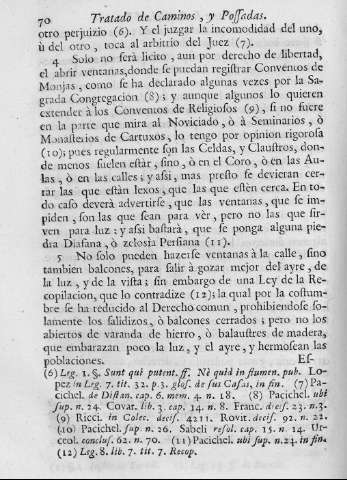 70 Tratado de Caminos, y Possadas.
otro perjuizio (6). Y el juzgar la incomodidad del uno,
ù del otro, toca al arbitrio del Juez (7).
4 Solo no serà licito, aun por derecho de libertad,
el abrir ventanas, donde se puedan registrar Conventos de
Monjas, como se ha declarado algunas vezes por la Sa-
grada Congregacion (8); y aunque algunos lo quieren
extender à los Conventos de Religiosos (9), si no fuere
en la parte que mira al Noviciado, ò à Seminarios, ò
Monasterios de Cartuxos, lo tengo por opinion rigorosa
(10); pues regularmente son las Celdas, y Claustros, don-
de menos suelen estàr, sino, ò en el Coro, ò en las Au-
las, ò en las calles; y assi, mas presto se devieran cer-
rar las que estàn lexos, que las que estèn cerca. En to-
do caso deverà advertirse, que las ventanas, que se im-
piden, son las que sean para vèr, pero no las que sir-
ven para luz; y assi bastarà, que se ponga alguna pie-
dra Diafana, ò zelosìa Persiana (11).
5 No solo pueden hazerse ventanas à la calle, sino
tambien balcones, para salir à gozar mejor del ayre, de
la luz, y de la vista; sin embargo de una Ley de la Re-
copilacion, que lo contradize (12); la qual por la costum-
bre se ha reducido al Derecho comun, prohibiendose so-
lamente los salidizos, ò balcones cerrados; pero no los
abiertos de varanda de hierro, ò balaustres de madera,
que embarazan poco la luz, y el ayre, y hermosean las
poblaciones. Es-
(6) Leg. 1. §. Sunt qui putent. ff. Nè quid in flumen. pub. Lo-
pez in Leg. 7. tit. 32. p. 3. glos. de sus Casas, in fin. (7) Pa-
cichel. de Distan. cap. 6. mem. 4. n. 18. (8) Pacichel. ubi
sup. n. 24. Covar. lib. 3. cap. 14. n. 8. Franc. decis. 23. n. 3.
(9) Ricci. in Colec. decis. 4211. Rovit. decis. 92. n. 22.
(10) Pacichel. sup. n. 26. Sabeli resol. cap. 15. n. 14. Ur-
ceol. conclus. 62. n. 70. (11) Pacichel. ubi sup. n. 24. in fin.
(12) Leg. 8. lib. 7. tit. 7. Recop.